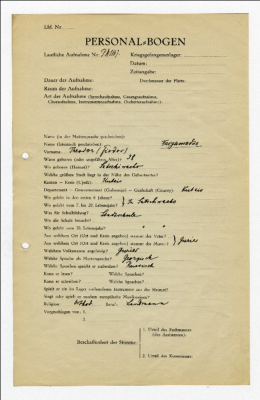 Lfd. Nr.
PERSONAL-BOGEN
Lautliche Aufnahme Nr.: Kriegsgefangenenlager:
Datum:
Dauer der Aufnahme: Zeitangabe:
Raum der Aufnahme: Durchmesser der Platte:
Art der Aufnahme (Sprechaufnahme, Gesangsaufnahme,
Choraufnahme, Instrumentenaufnahme, Orchesteraufnahme):
Name (in der Muttersprache geschrieben):
Name (lateinisch geschrieben):
Vorname: Theodor
Wann geboren (oder ungefähres Alter)? 38
Wo geboren (Heimat)?
Welche größere Stadt liegt in der Nähe des Geburtsortes?
Kanton — Kreis (Ujedz): Kutais
Departement — Gouvernement (Gubernija) — Grafschaft (County): Kutais
Wo gelebt in den ersten 6 Jahren?
Wo gelebt vom 7. bis 20. Lebensjahr? In
Was für Schulbildung?
Wo die Schule besucht?
Wo gelebt vom 20. Lebensjahr?
Aus welchem Ort (Ort und Kreis angeben) stammt der Vater?
Aus welchem Ort (Ort und Kreis angeben) stammt die Mutter?
Welchem Volksstamm angehörig?
Welche Sprache als Muttersprache? Georgisch
Welche Sprachen spricht er außerdem? Russisch
Kann er lesen? Welche Sprachen?
Kann er schreiben? Welche Sprachen?
Spielt er ein im Lager vorhandenes Instrument aus der Heimat?
Singt oder spielt er modern europäische Musikweisen?
Religion: Beruf: Landmann
Vorgeschlagen von: 1.
2.
Beschaffenheit der Stimme:
1. Urteil des Fachmannes
(des Assistenten):
2. Urteil des Kommissars: